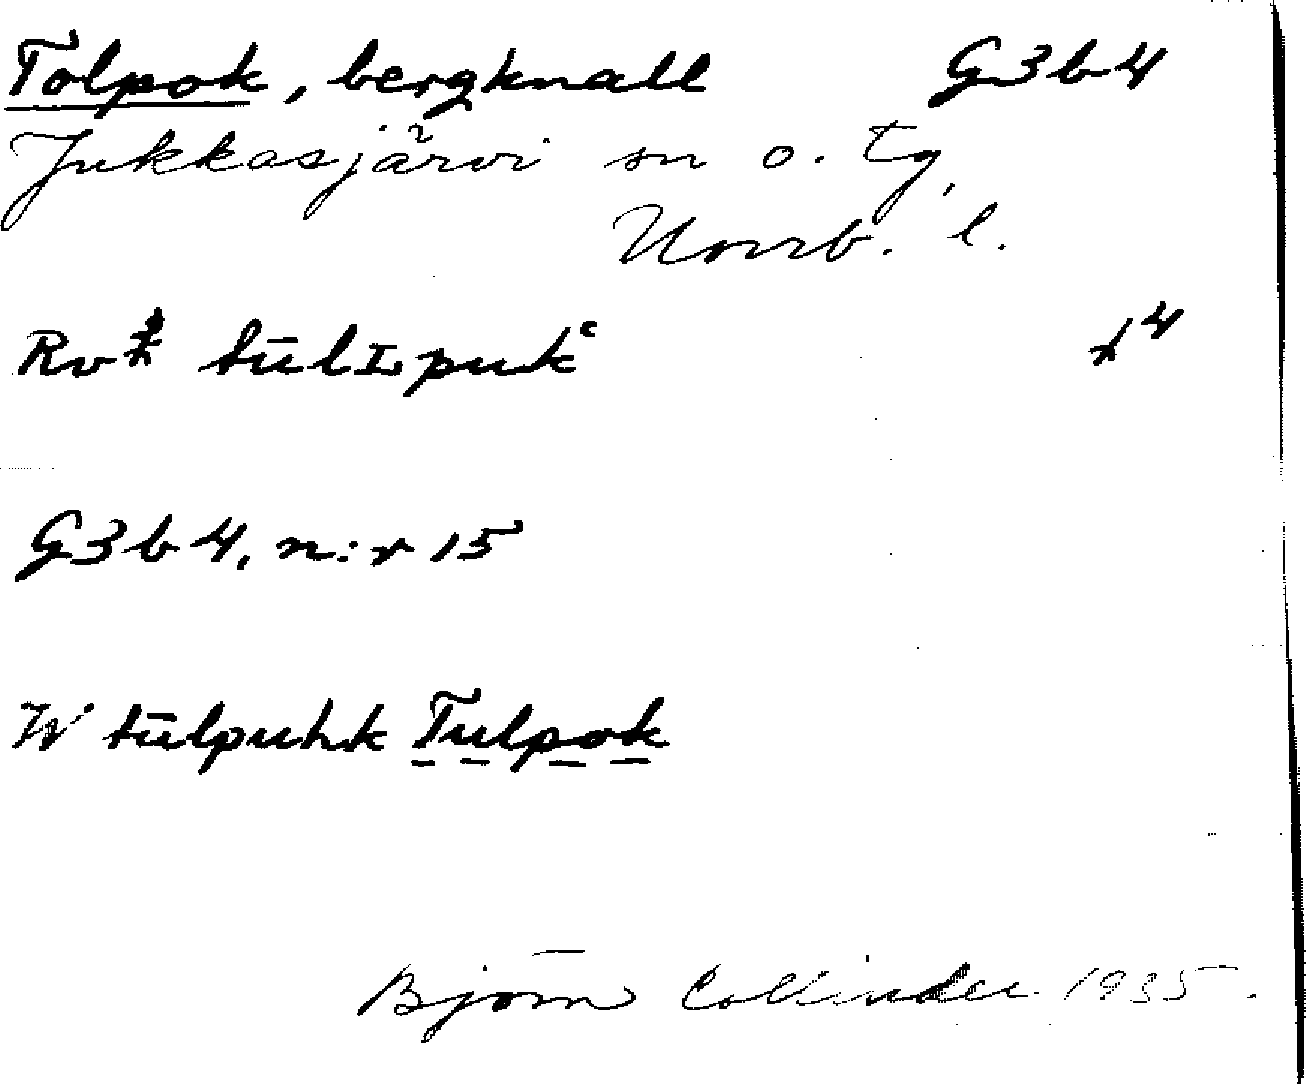 Tolpok, bergknall G3b4
Jukkasjärvi sn o. tg,
Norrb. l.
tūlɪpuk‘
G3b4, n:r 15
W tūlpuhk Tulpok
Björn Collinder 1935.